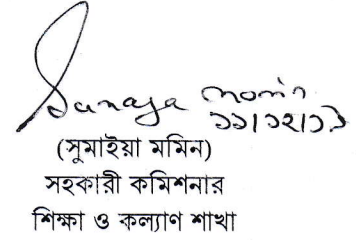 Sumaya momin
১১/১২/১৩
(সুমাইয়া মমিন)
সহকারী কমিশনার
শিক্ষা ও কল্যাণ শাখা